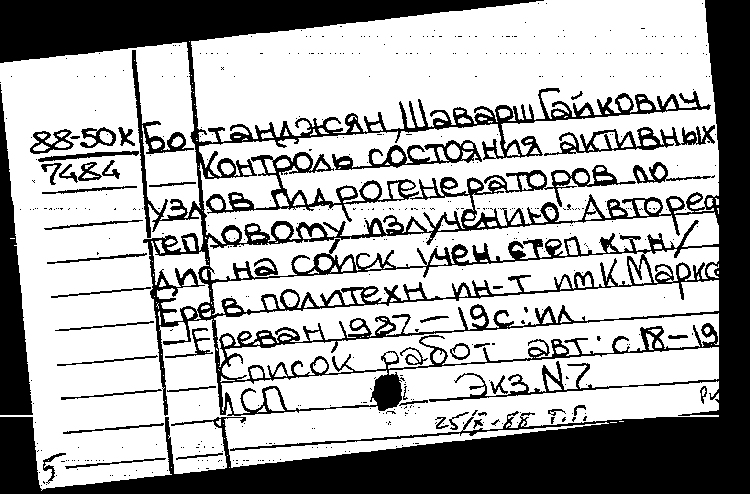 88-50к Бостанджян, Шаварш Гайкович.
7484 Контроль состояния активных
узлов гидрогенераторов по
тепловому излучению: Автореф
дис. на соиск. учен. степ. к.т.н./
Ерев. политехн. ин-т им. К. Маркса
— Ереван, 1987. — 19 с.: ил.
Список работ авт.: с. 18-19
Экз. N 7.
25/X-88 Г.П.
5